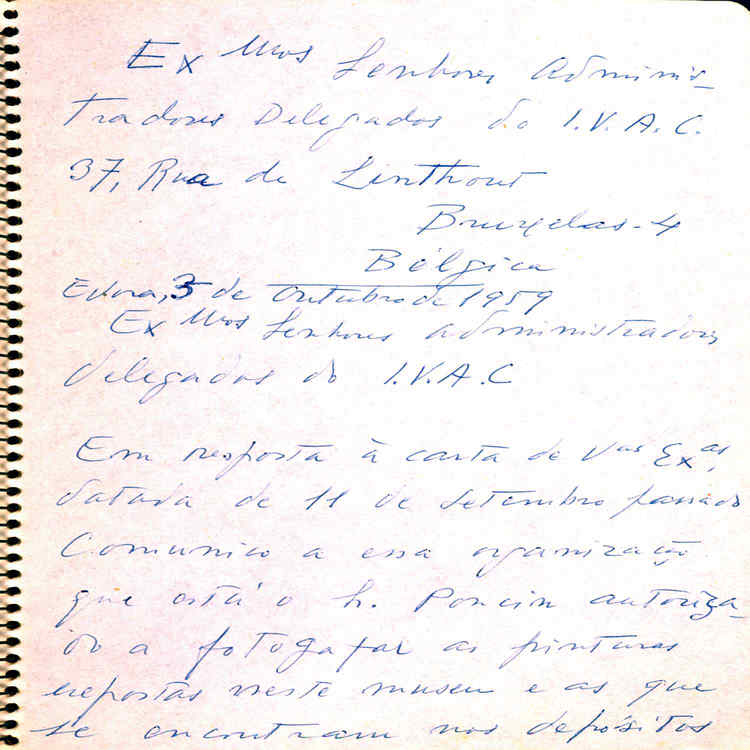 Ex mos Senhores Adminis-
tradores Delegados do I.V.A.C.
37, Rua de Linthout
Bruxelas-4
Bélgica
Evora, 5 de Outubro de 1959
Ex mos Senhores administradores
delegados do I.V.A.C
Em resposta à carta de Vas Exas,
datada de 11 de Setembro passado
Comunico a essa organização
que está o h. Poncin autoriza-
do a fotogafar as pinturas
expostas neste museu e as que
se encontram nos depósitos